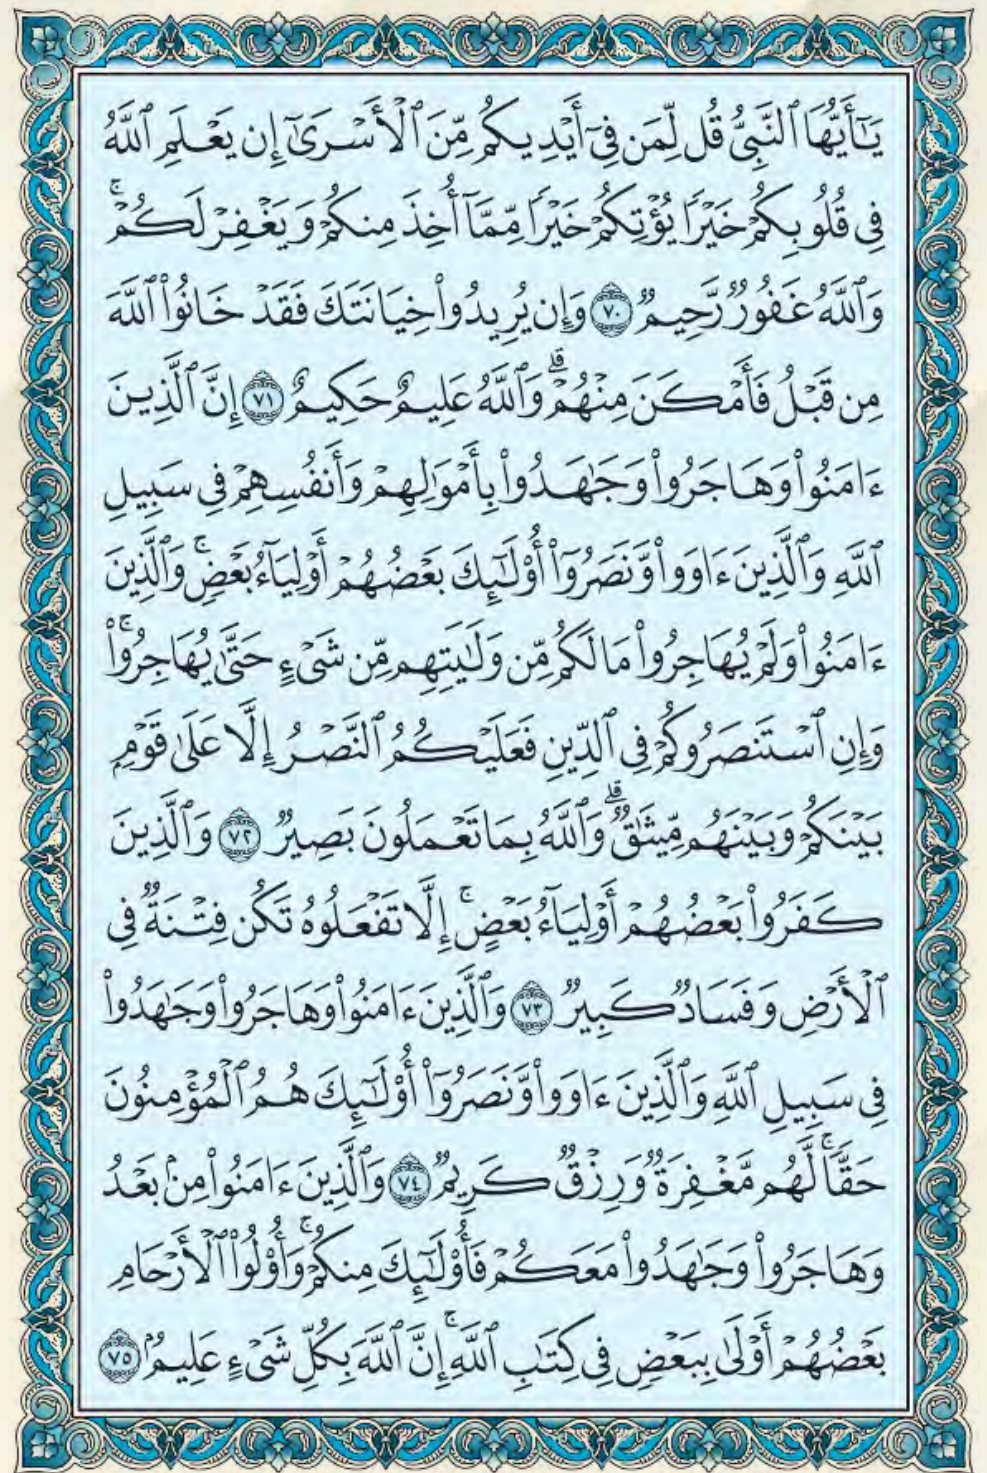 يَٰٓأَيُّهَا ٱلنَّبِيُّ قُل لِّمَن فِيٓ أَيْدِيكُم مِّنَ ٱلْأَسْرَىٰٓ إِن يَعْلَمِ ٱللَّهُ
فِي قُلُوبِكُمْ خَيْرًا يُؤْتِكُمْ خَيْرًا مِّمَّآ أُخِذَ مِنكُمْ وَيَغْفِرْ لَكُمْۚ
وَٱللَّهُ غَفُورٌ رَّحِيمٌ ٧٠ وَإِن يُرِيدُوا۟ خِيَانَتَكَ فَقَدْ خَانُوا۟ ٱللَّهَ
مِن قَبْلُ فَأَمْكَنَ مِنْهُمْۗ وَٱللَّهُ عَلِيمٌ حَكِيمٌ ٧١ إِنَّ ٱلَّذِينَ
ءَامَنُوا۟ وَهَاجَرُوا۟ وَجَٰهَدُوا۟ بِأَمْوَٰلِهِمْ وَأَنفُسِهِمْ فِي سَبِيلِ
ٱللَّهِ وَٱلَّذِينَ ءَاوَوا۟ وَّنَصَرُوٓا۟ أُو۟لَٰٓئِكَ بَعْضُهُمْ أَوْلِيَآءُ بَعْضٖۚ وَٱلَّذِينَ
ءَامَنُوا۟ وَلَمْ يُهَاجِرُوا۟ مَا لَكُم مِّن وَلَٰيَتِهِم مِّن شَيْءٍ حَتَّىٰ يُهَاجِرُوا۟ۚ
وَإِنِ ٱسْتَنصَرُوكُمْ فِي ٱلدِّينِ فَعَلَيْكُمُ ٱلنَّصْرُ إِلَّا عَلَىٰ قَوْمِۭ
بَيْنَكُمْ وَبَيْنَهُم مِّيثَٰقٌۗ وَٱللَّهُ بِمَا تَعْمَلُونَ بَصِيرٌ ٧٢ وَٱلَّذِينَ
كَفَرُوا۟ بَعْضُهُمْ أَوْلِيَآءُ بَعْضٍۚ إِلَّا تَفْعَلُوهُ تَكُن فِتْنَةٌ فِي
ٱلْأَرْضِ وَفَسَادٌ كَبِيرٌ ٧٣ وَٱلَّذِينَ ءَامَنُوا۟ وَهَاجَرُوا۟ وَجَٰهَدُوا۟
فِي سَبِيلِ ٱللَّهِ وَٱلَّذِينَ ءَاوَوا۟ وَّنَصَرُوٓا۟ أُو۟لَٰٓئِكَ هُمُ ٱلْمُؤْمِنُونَ
حَقًّاۚ لَّهُم مَّغْفِرَةٌ وَرِزْقٌ كَرِيمٌ ٧٤ وَٱلَّذِينَ ءَامَنُوا۟ مِنۢ بَعْدُ
وَهَاجَرُوا۟ وَجَٰهَدُوا۟ مَعَكُمْ فَأُو۟لَٰٓئِكَ مِنكُمْۚ وَأُو۟لُوا۟ ٱلْأَرْحَامِ
بَعْضُهُمْ أَوْلَىٰ بِبَعْضٍ فِي كِتَٰبِ ٱللَّهِۚ إِنَّ ٱللَّهَ بِكُلِّ شَيْءٍ عَلِيمُۢ ٧٥